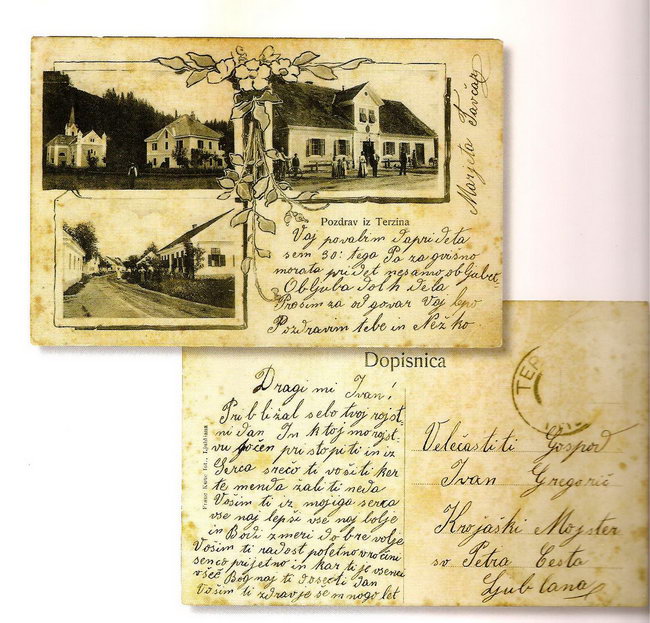 Pozdrav iz Terzina
Vaj povabim da prideta
sem 30: tega Pa za gvišno
morata pridet nesamo obljubet
Obljuba dolh dela
Prosim za odgovar Vaj lepo
Pozdravim tebe in Nežiko
Marjeta Tavčar
Dopisnica
TER
Dragi mi Ivan!
Približal se bo tvoj rojst
ni dan In k toj mo rojst
vu očen pristopiti in iz
Serca srečo ti vošiti ker
te menda žaliti neda
Vošim ti iz mojiga serca
vse naj lepši vse naj bolje
in Bodi zmeri dobre volje
Vošim ti radost poletno vročini
senco prijetno in kar ti je vsenci
všeč Bog naj ti doseči dan
Vošim ti zdravje se mnogo let
Franc Kunc fot., Ljubljana
Velečastiti Gospod
Ivan Gregorič
Krojaški Mojster
sv Petra Cesta
Ljublana